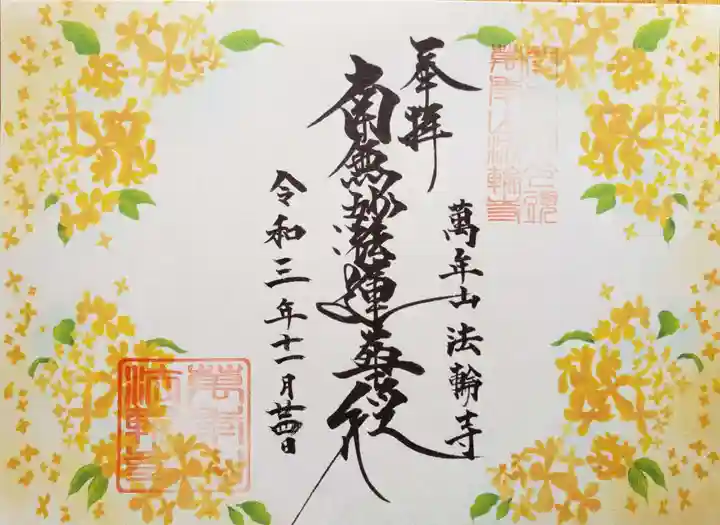 奉拝
萬年山法輪寺
南無妙法蓮華経
令和三年十一月廿四日
萬年山法輪寺